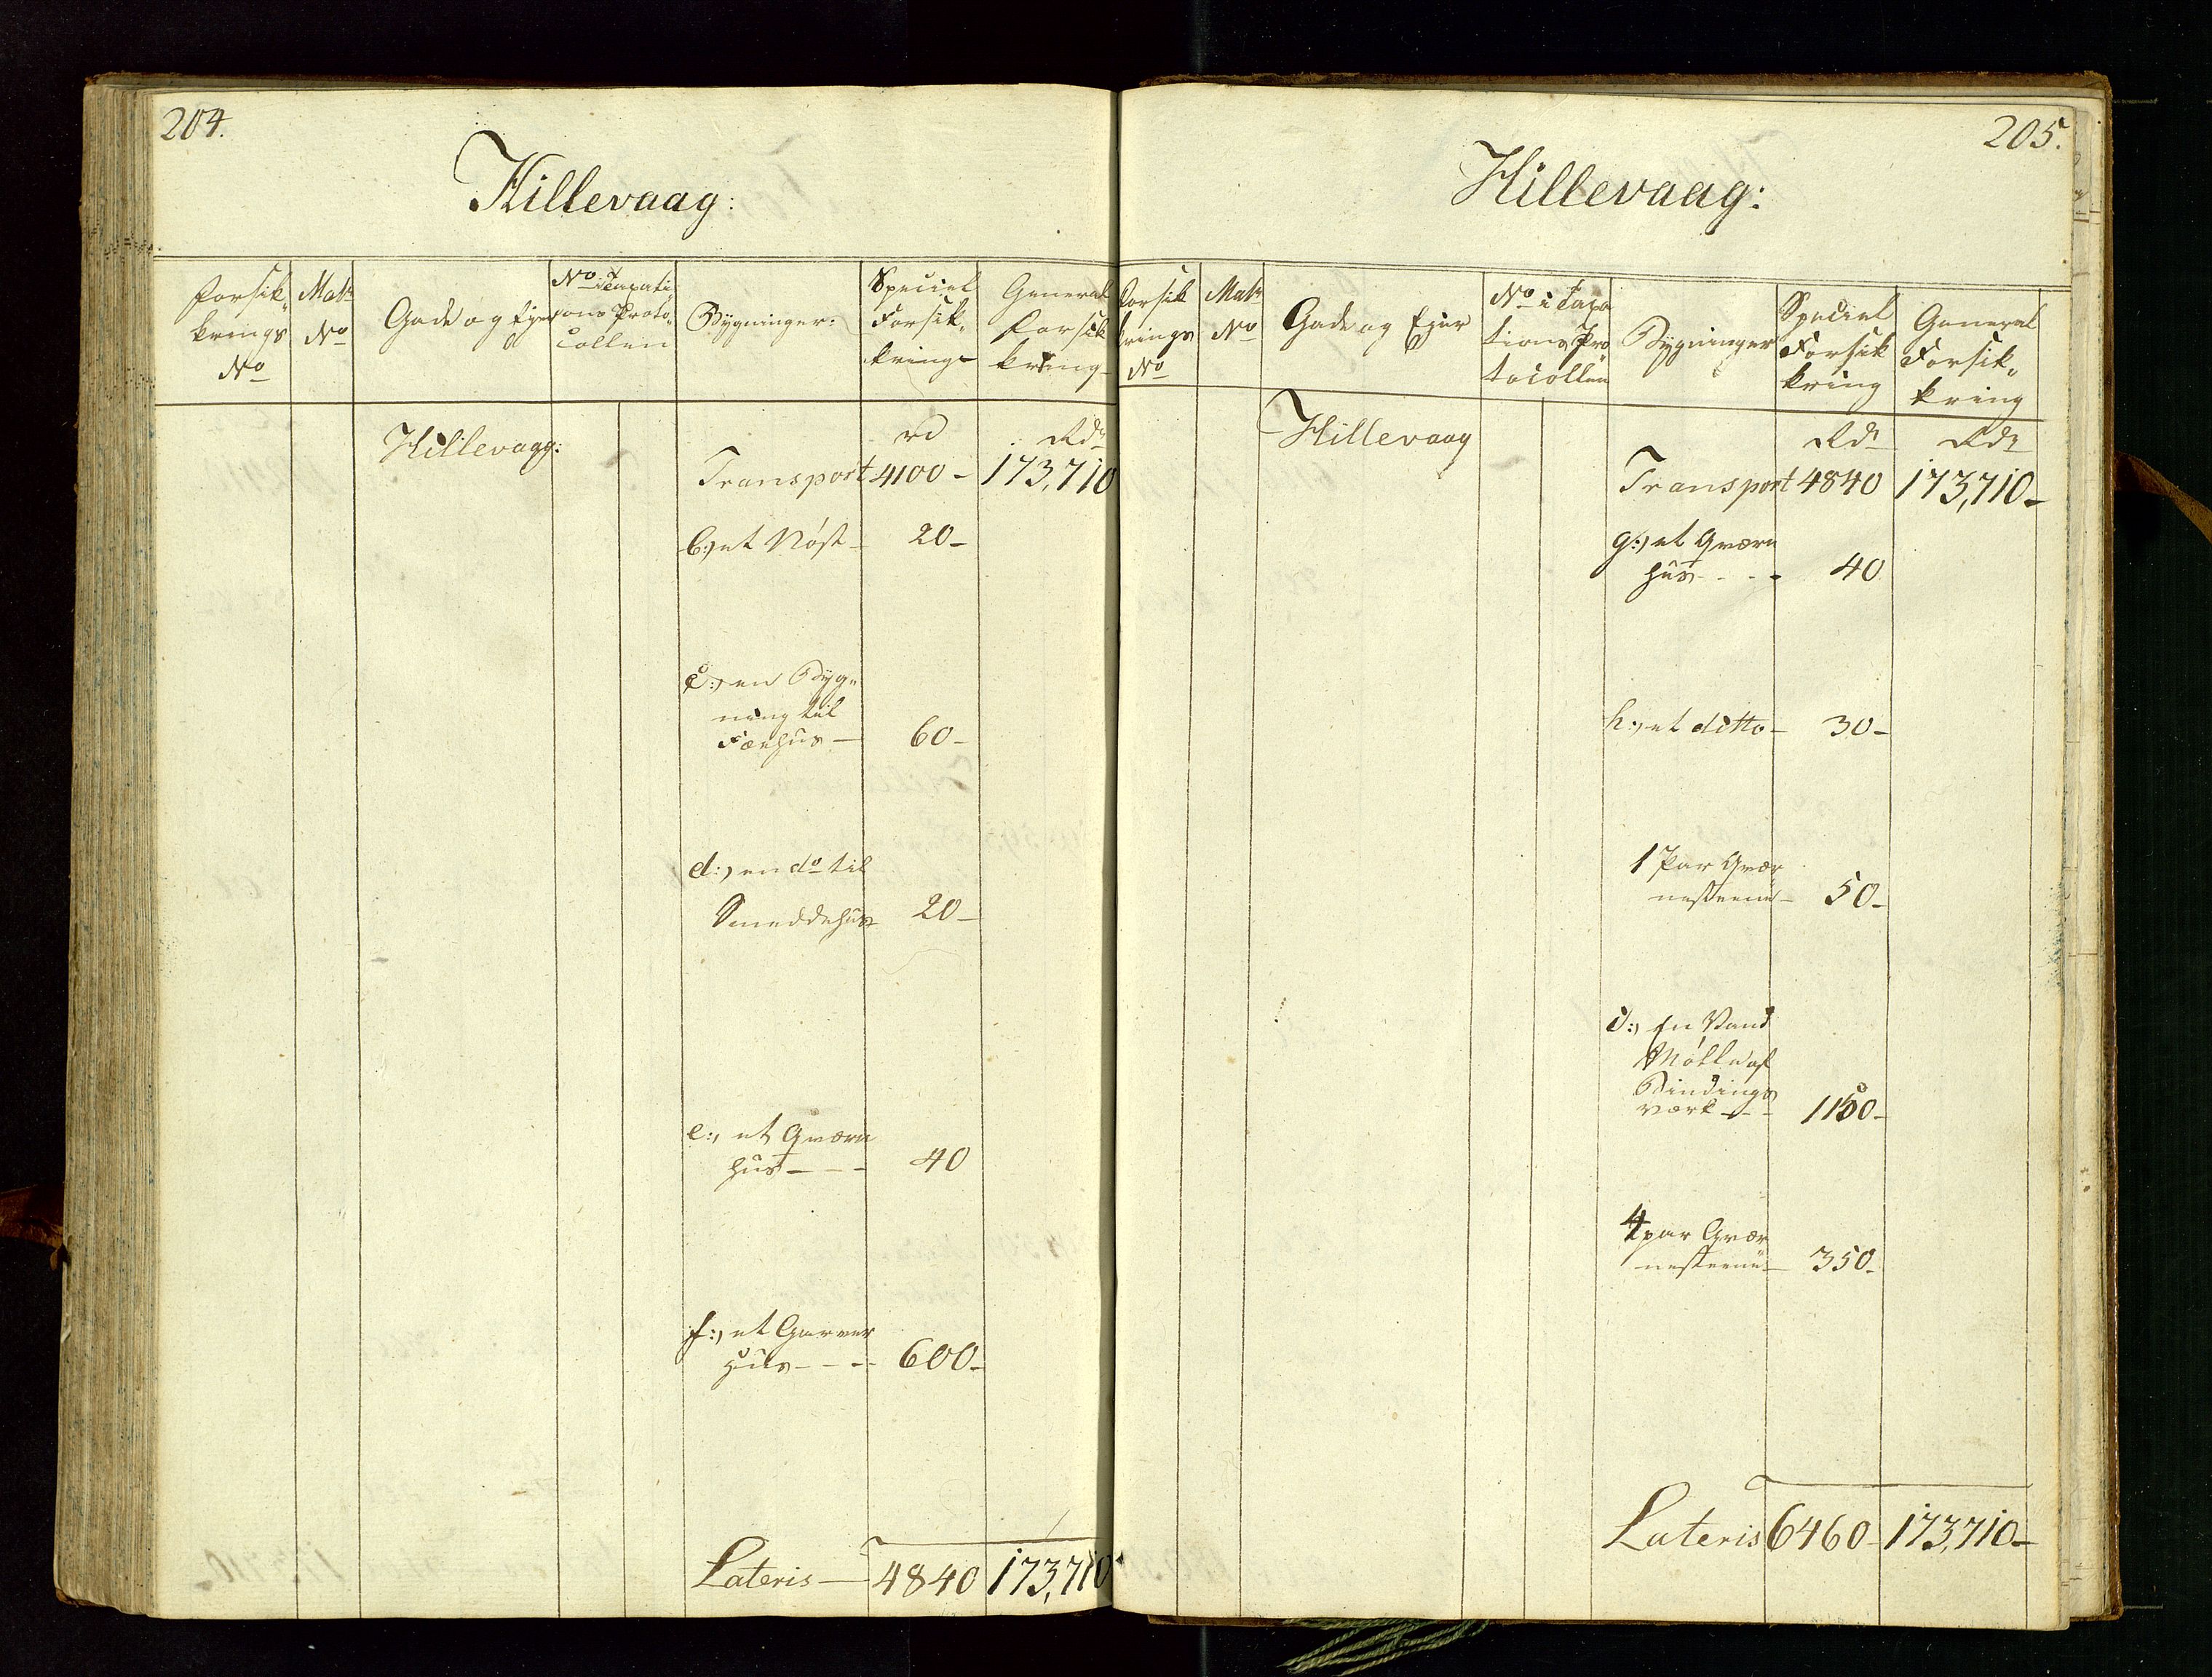 204.
Hillevaag:
Forsik„
krings
No
Matr
No
Gade og Ejer
No i Taxati
ons Proto„
collen
Bygninger:
Speciel
Forsik„
kring
General
Forsik
kring
Hillevaag:
rd
Rdr
Transport 4100 - 173,710
b:) et Nøst - 20 -
c:) en Byg„
ning til
Fæehus - 60 -
d:) en do til
Smeddehus 20 -
e:) et Qværn
hus - - - 40
f:) et Garver
Huus - - - 600 -
Lateris - 4840 173,710
205.
Hillevaag:
Forsik
krings
No
Matr
No
Gade og Ejer
No i Taxa
tions Pro
tocollen
Bygninger
Speciel
Forsik
kring
General
Forsik„
kring
Hillevaag
Rdr
Rdr
Transport 4840 173,710 -
g:) et Qværn
hus - - - 40
h:) et ditto - 30 -
1 Par Qvær
nesteene - 50 -
i:) En Vand
Mølle af
Bindings
værk - - - 1150 -
4 par Qvær
nesteene - 350 -
Lateris 6460 - 173,710 -